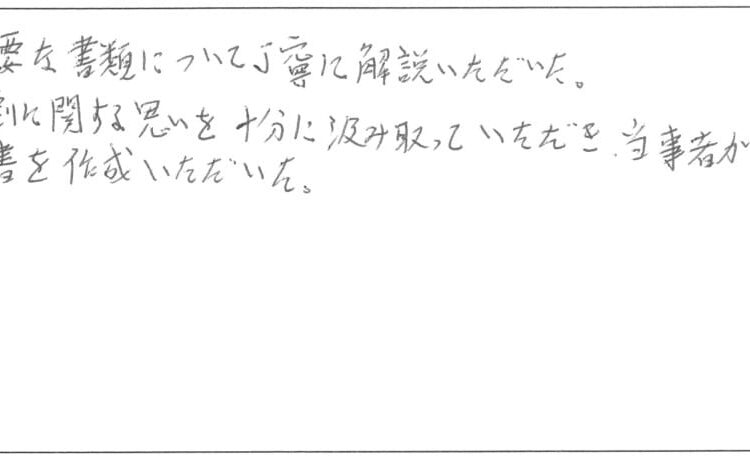 要な書類について丁寧に解説いただいた。
割に関する思いを十分に汲み取っていただき、当事者が
書を作成いただいた。